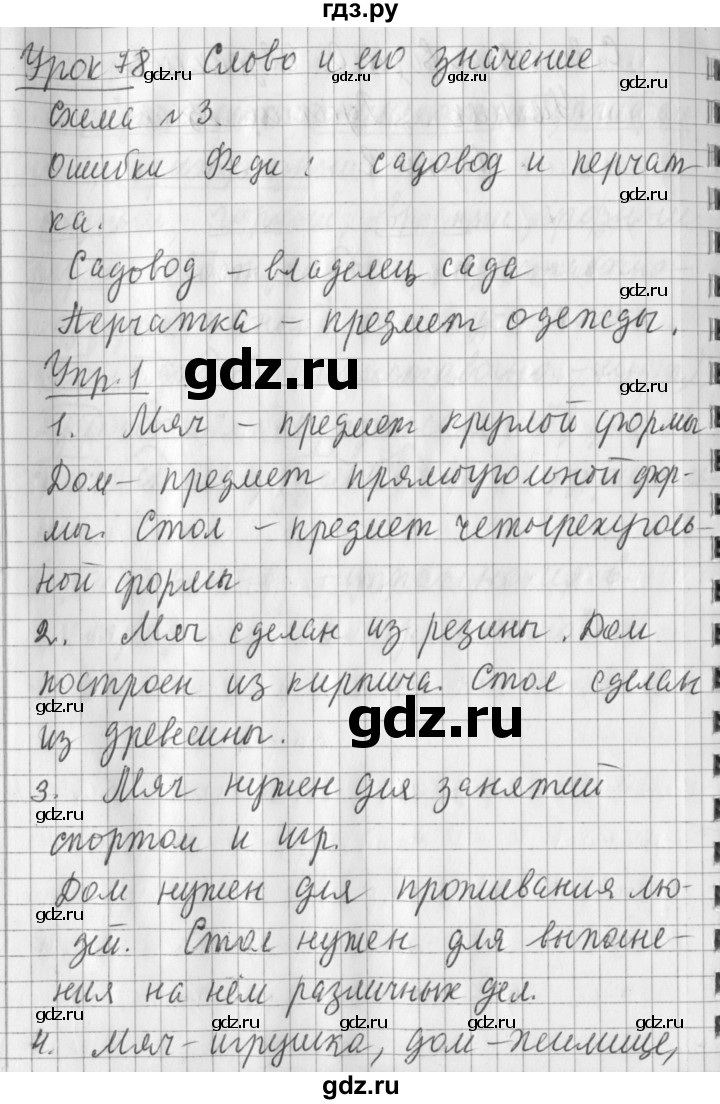 гдз.ру
Урок 78. Слово и его значение
gdz.ru gdz.ru gdz.ru
Схема №3.
gdz.ru
Ошибки Феди: садовод и перчат-
gdz.ru
ка.
Садовод – владелец сада
gdz.ru
Перчатка – предмет одежды.
Упр. 1
gdz.ru
gdz.ru
1. Мяч – предмет круглой формы
Дом – предмет прямоугольной фор-
мы. Стол – предмет четырехуголь-
ной формы
2. Мяч сделан из резины. Дом
построен из кирпича. Стол сделан
gdz.ru
gdz.ru
из древесины.
3. Мяч нужен для занятий
gdz.ru
спортом и игр.
Дом нужен для проживания лю-
gdz.ru
дей. Стол нужен для выполне-
ния на нём различных дел.
gdz.ru gdz.ru gdz.ru gdz.ru
4. Мяч – игрушка, дом – жилище,
gdz.ru